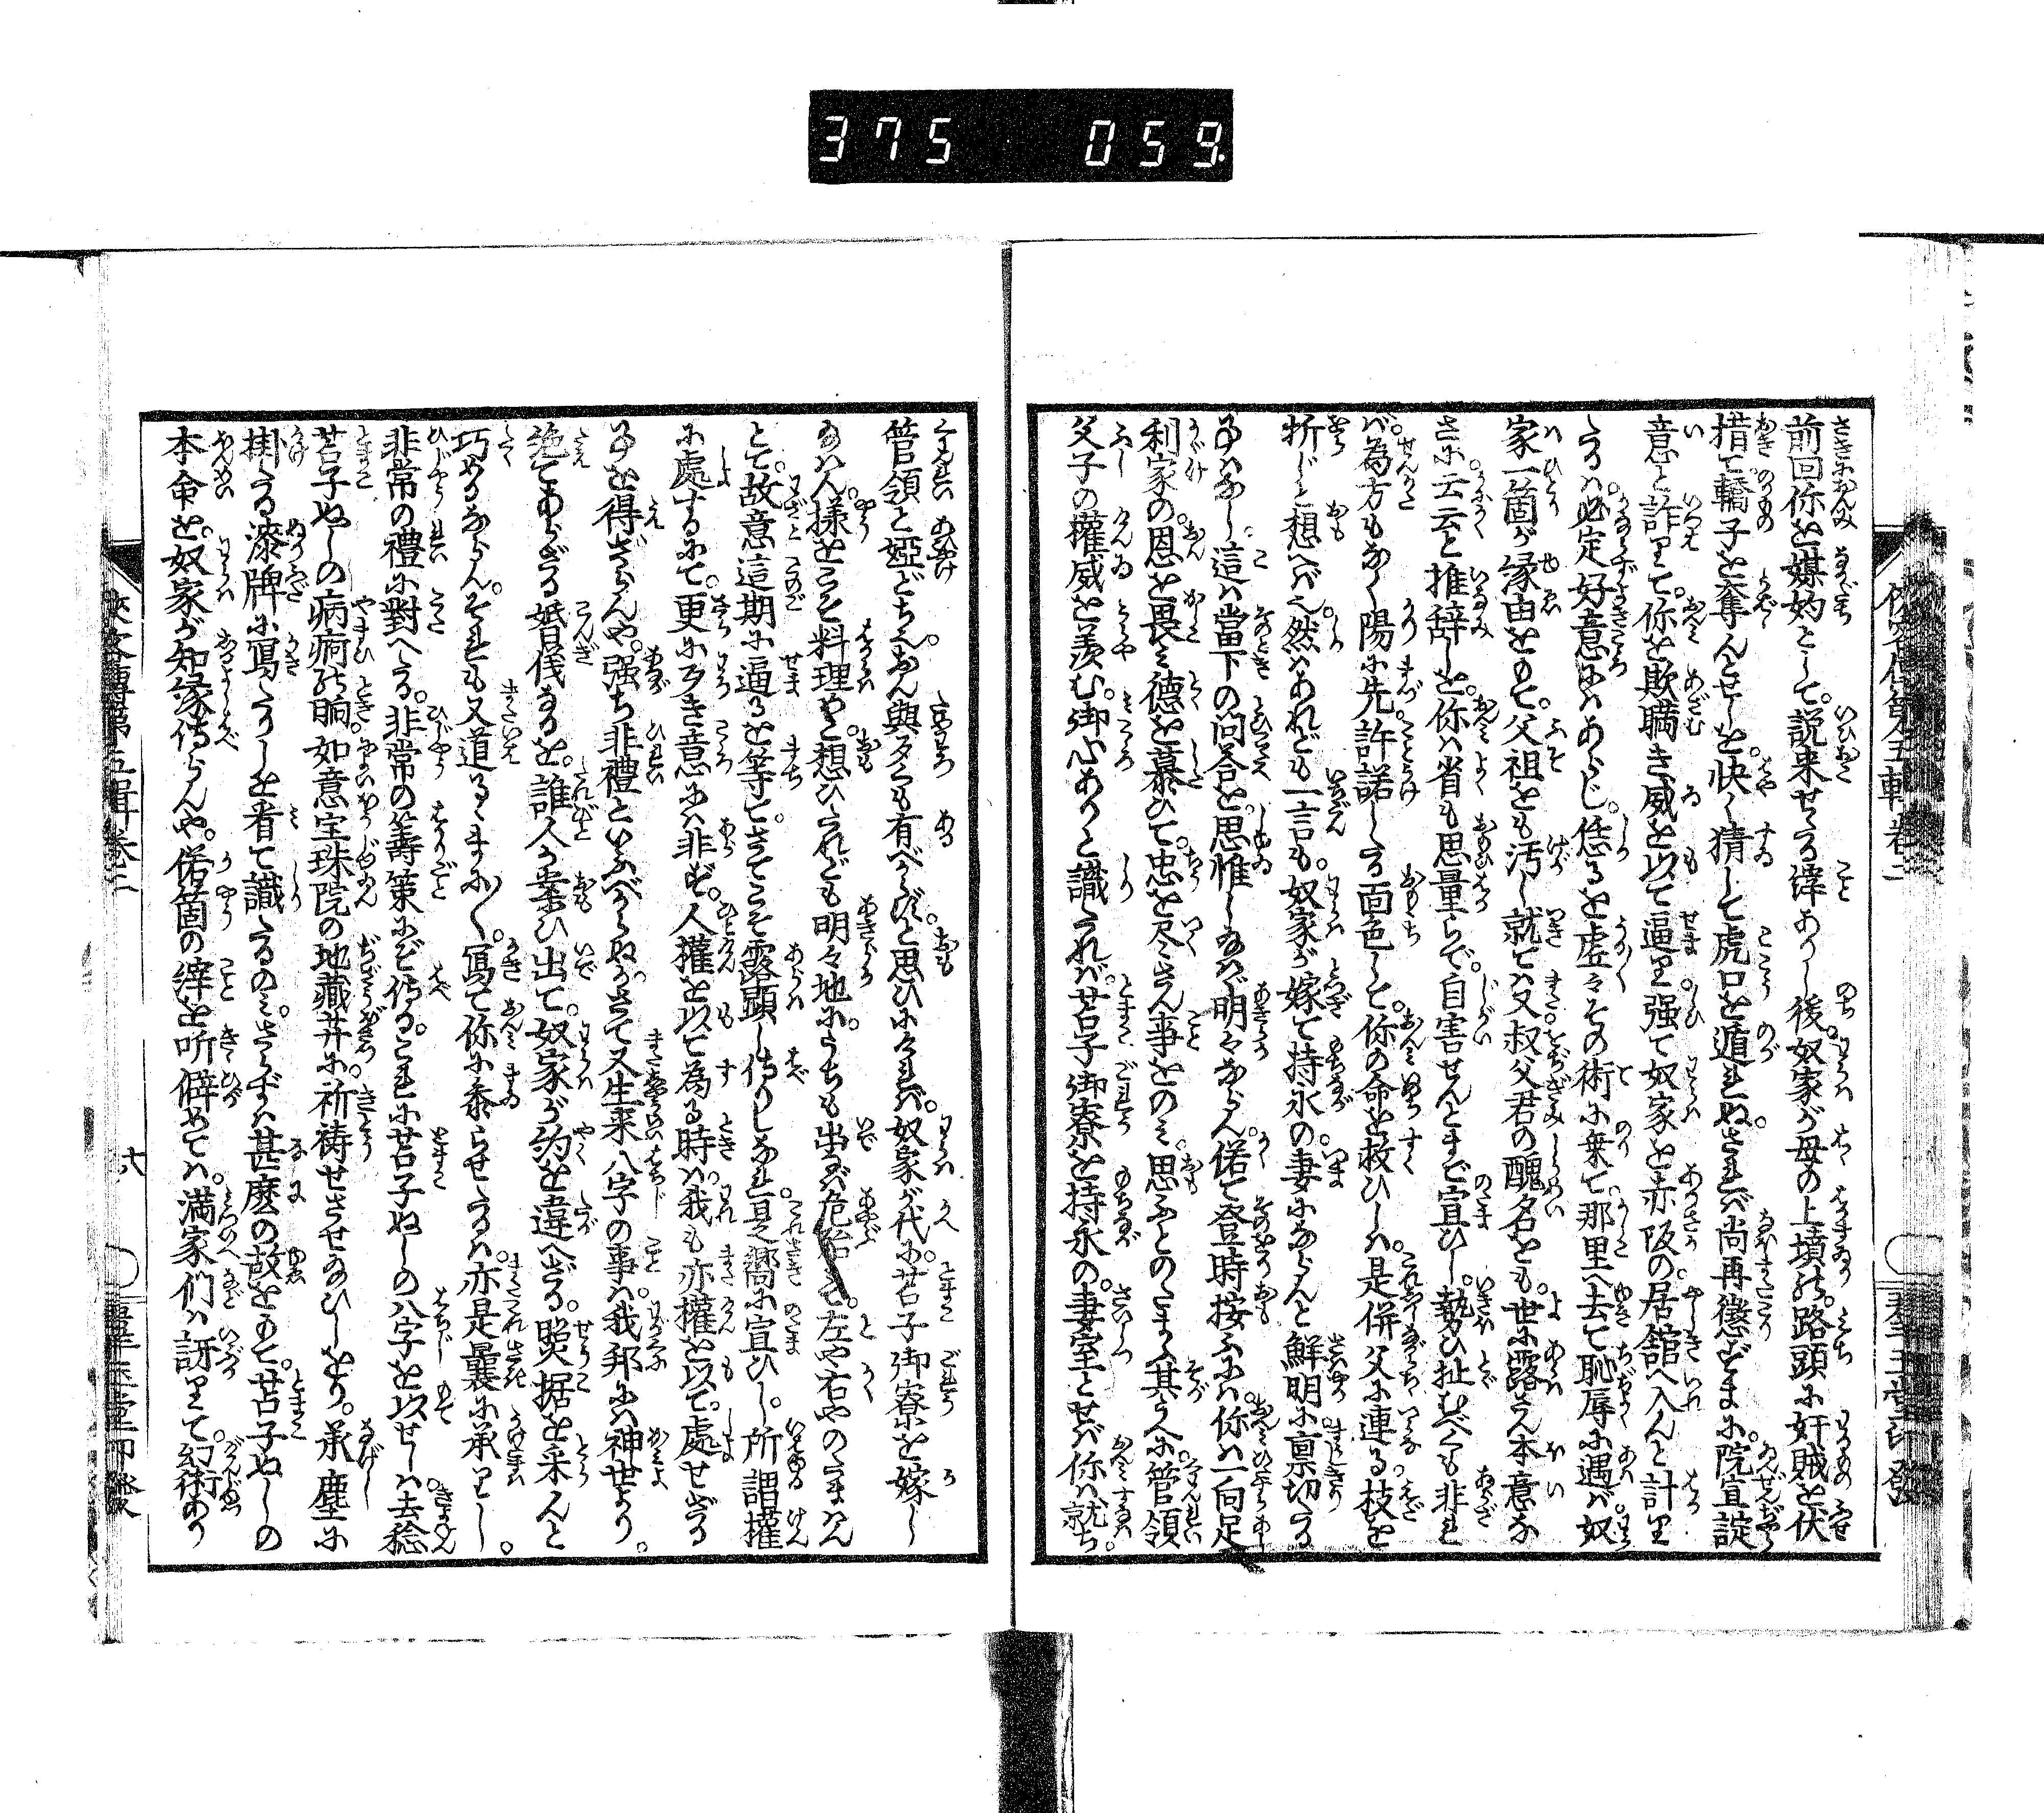 375 059
前回你を媒妁として。説来せる緯あり〜後。奴家が母の上墳の。路頭に奸賊を伏
措て。轎子を奪んとせしを。快く猜して虎口を遁れぬ。されば尚再懲ずまに。院宣諚
意と詐りて。你を欺瞞き威を以て逼り。强て奴家を赤阪の。居館へ入んと計り
たるは。必定好意にはあらじ。恁るを虚々その術に乗て。那里へ去て恥辱に遇ば。奴
家一箇が縁由をもて。父祖をも汚し就ては又。叔父君の醜名をも。世に露さん本意な
さに。云云と推辞しを。你は省も思量らで。自害せんとまで宣ひし。勢ひ扯むべくも非れ
ば。為方もなく陽に先。許諾したる面色して。你の命を救ひしは。是併父に連る枝を
折じと想へば也。然はあれども一言も。奴家が嫁て持永の。妻にならんと鮮明に。稟切たる
事はなし。這は當下の問答を。思惟し給はゞ明々ならん。偖て登時按ふには。你は一向足
利家の。恩を畏み徳を慕ひて。忠を尽さん事をのみ。思ふとのたまふ其うへに。管領
父子の權威を羨む。御心ありと識たれば。苫子御寮を持永の。妻室とせば你は就ち。
管領と婭どち也。なん與多くも有べからずと思ひにければ。奴家が代に。苫子御寮を嫁し
給はん。様をこそ料理めと。想ひたれども明々地に。うち出なば危殆とて。左や右やのたまはん
とて。故意這期に逼るを等て。さてこそ露顕し侍りしなれ。是嚮に宣ひし。所謂權
に處するにて。更に歹き意には非ず。人權を以て為る時は。我も亦權を以て。處せざる
事を得ざらんや。强ち非禮といふべからぬか。さて又生来八字の事は。我邦には神世より。
絶てあらざる婚儀なるを。誰人か案ひ出て。奴家が約を違へざる。照据を采んと
巧めるならん。そもまた又道るゝまに〳〵。寫て你に泰らせたるは。亦是曩に承りし。
非常の禮に對へたる。非常の籌策にぞ侍る。これに苫子ぬしの八字を以せしは。去稔
苫子ぬしの病痾の時。如意宝珠院の地藏井に。祈祷せさせ給ひしをり。承塵に
掛たる漆牌に。寫たりしを看て識たるのみ。さらずは甚麼の故をもて。苫子ぬしの
本命を。奴家が知縁侍らんや。偌箇の縡を听僻めては。満家们は訝りて。幻術あり
十八